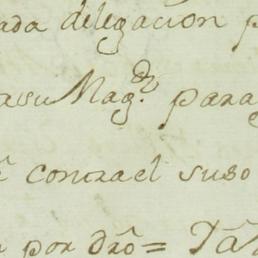 ada delegacion p
asu Mag.d para
contra el suso
por dro = Ta